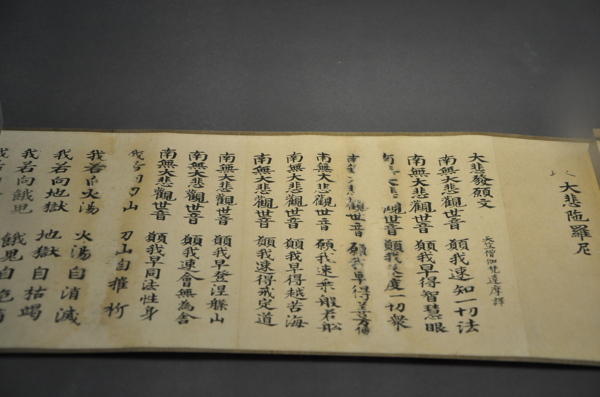 大悲陁羅尼
大悲發願文
僧伽梵達摩譯
南無大悲觀世音 願我速知一切法
南無大悲觀世音 願我早得智慧眼
觀世音 願我速度一切衆
觀世音 願我早得善方便
南無大悲觀世音 願我速乘般若舩
南無大悲觀世音 願我早得越苦海
南無大悲觀世音 願我速得戒定道
南無大悲觀世音 願我早登涅槃山
南無大悲觀世音 願我速會無為舎
南無大悲觀世音 願我早同法性身
我刀山 刀山自摧折
我若向火湯 火湯自消滅
我若向地獄 地獄自枯竭
我若向餓鬼 餓鬼自飽